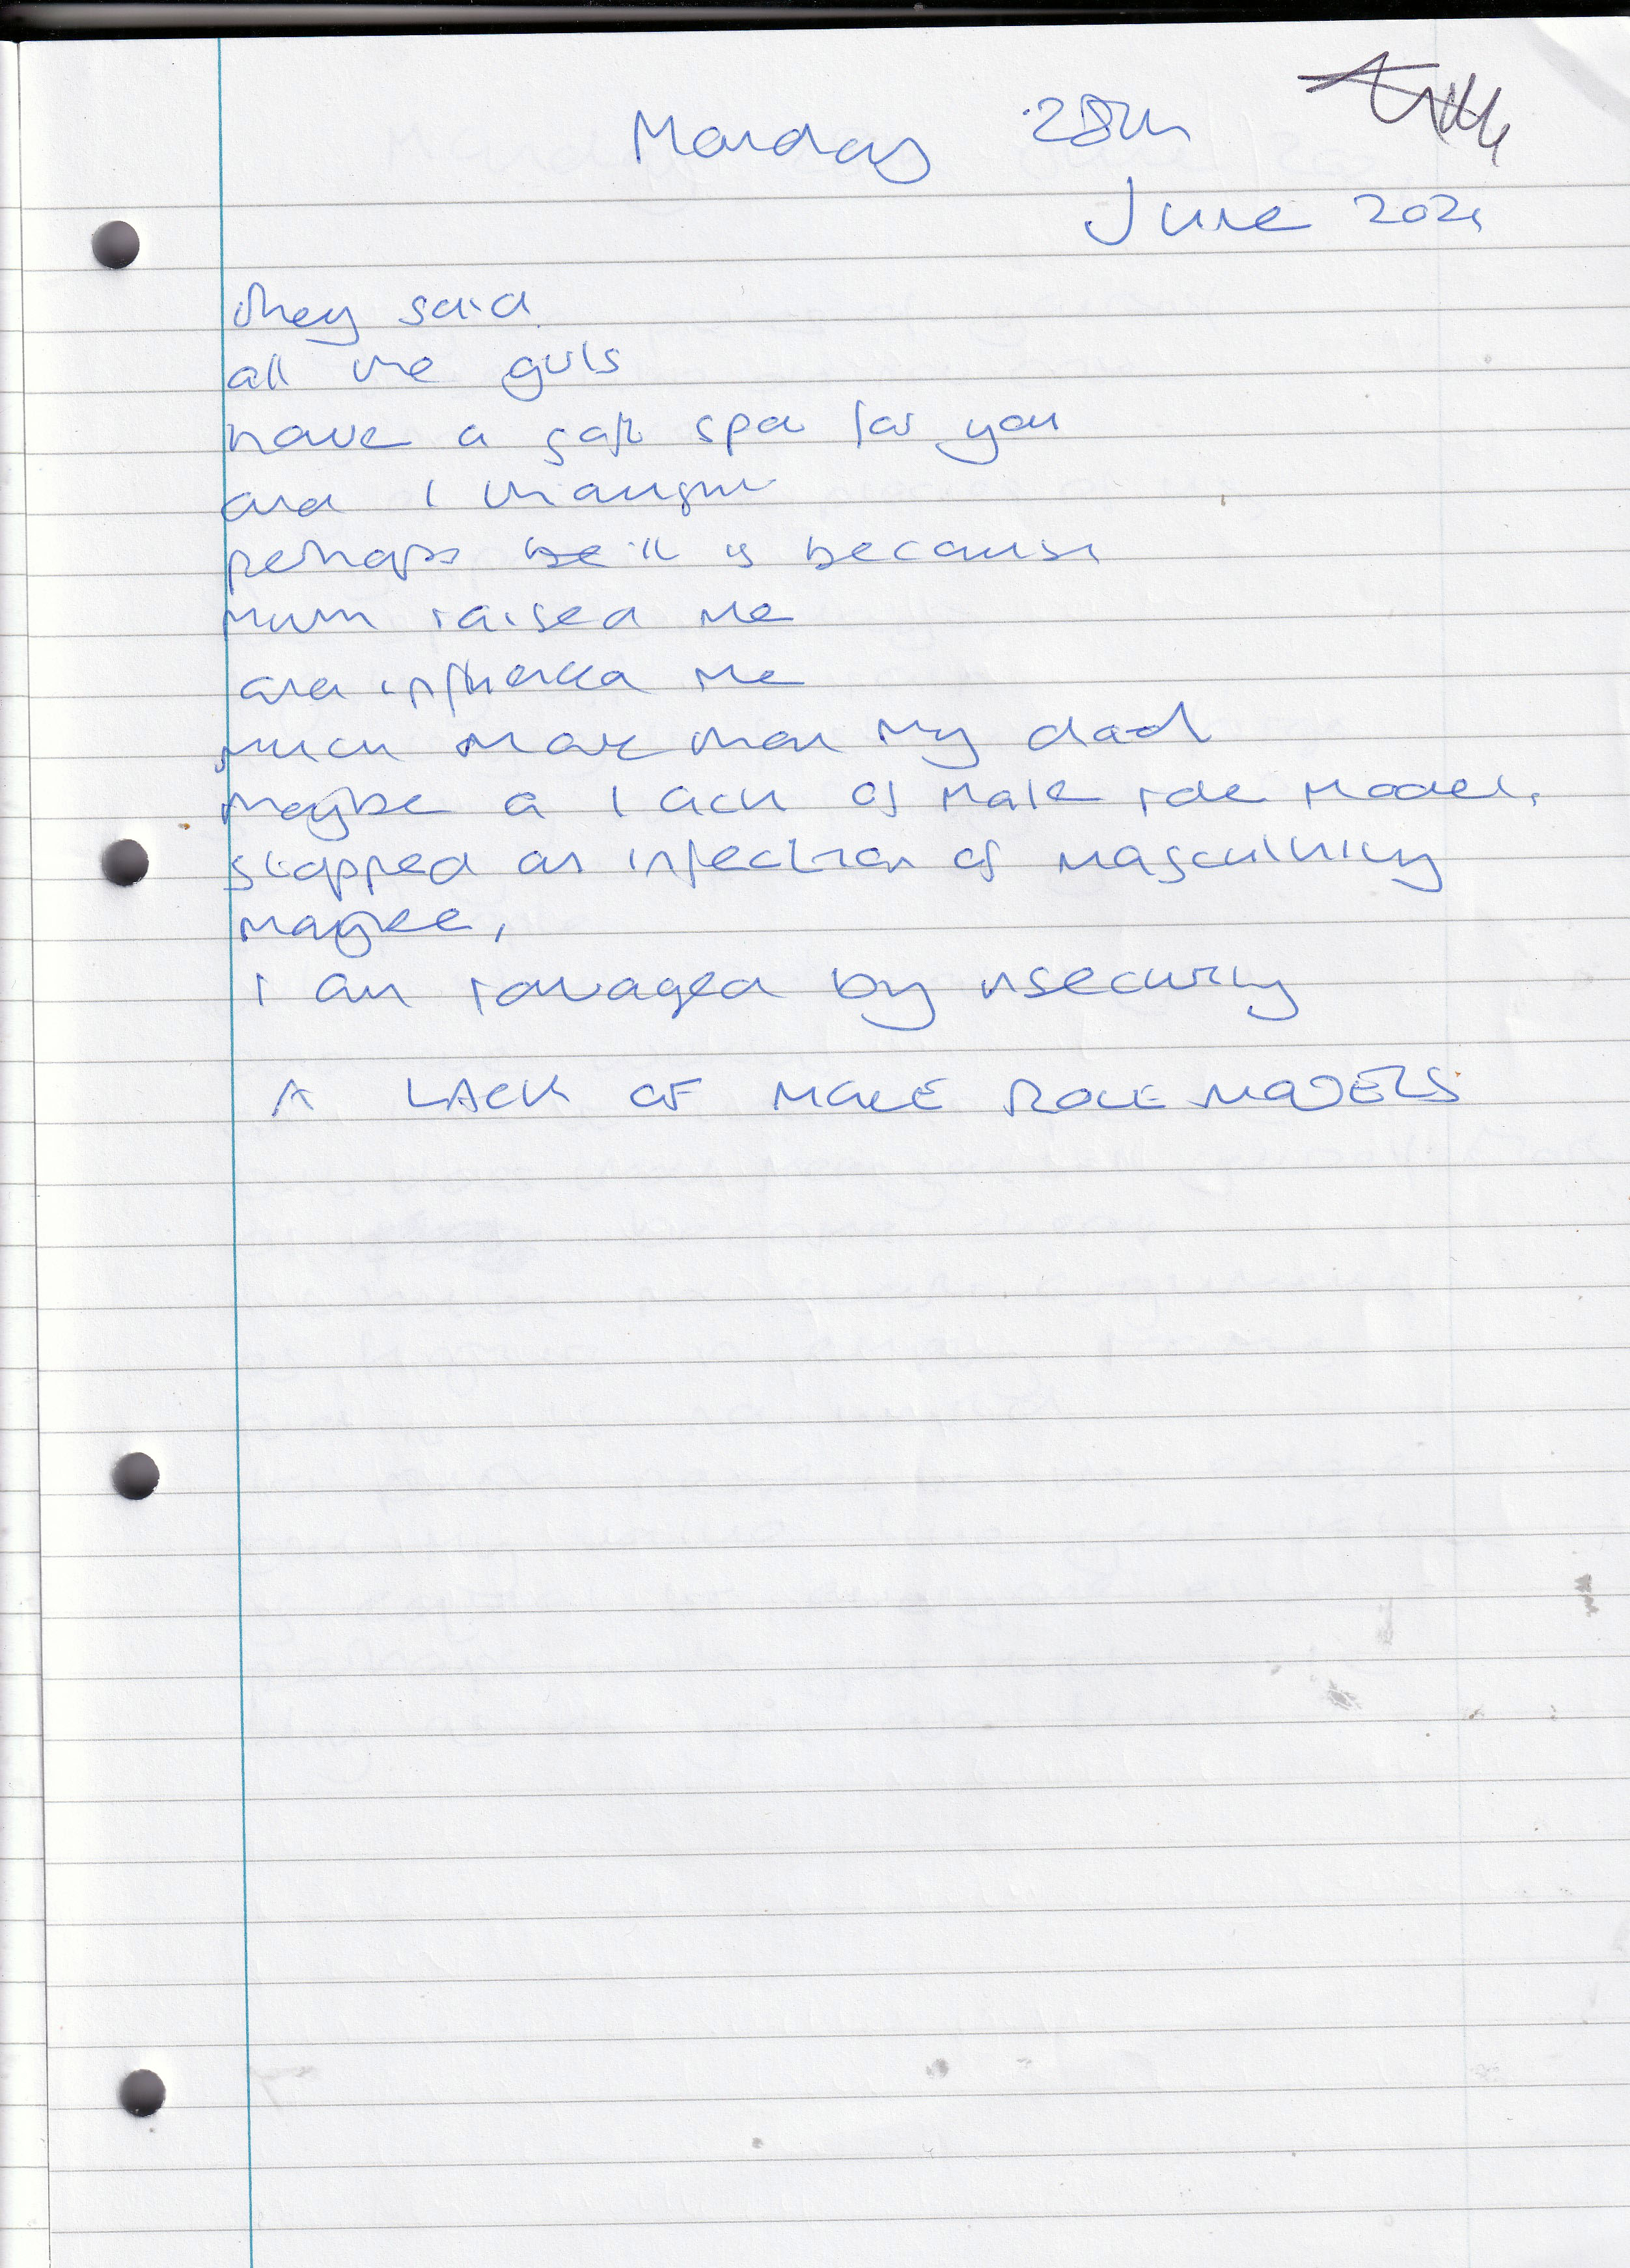 Monday 28th
June 2021
they said
all the girls
have a soft spot for you
and I thought
perhaps be it is because
mum raised me
and influenced me
much more than my dad
maybe a lack of male role models
stopped an infection of masculinity
maybe,
I am ravaged by insecurity
A LACK OF MALE ROLE MODELS